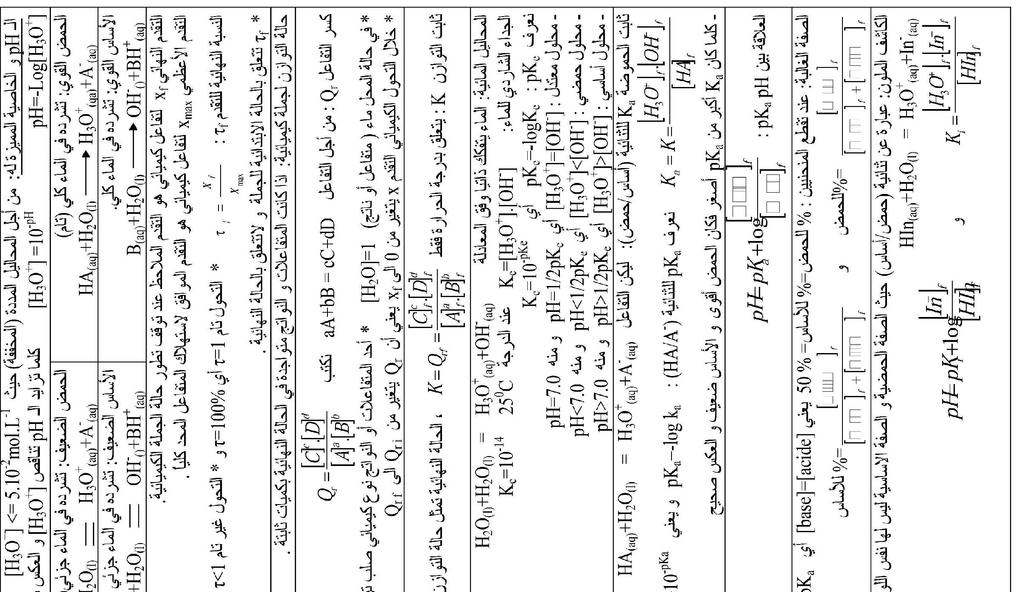 الـ pH و الخاصية المميزة له: من أجل المحاليل الممددة (المخففة) حيث [H₃O⁺] <= 5.10⁻²mol.L⁻¹
pH=-Log[H₃O⁺] [H₃O⁺] =10⁻ᵖᴴ كلما تزايد الـ pH تناقص [H₃O⁺] و العكس
الحمض القوي: تشرده في الماء كلي (تام)
HA(aq)+H₂O(l) → H₃O⁺(aq)+A⁻(aq)
الحمض الضعيف: تشرده في الماء جزئي
H₂O(l) = H₃O⁺(aq)+A⁻(aq)
الأساس القوي: تشرده في الماء كلي.
B(aq)+H₂O(l) → OH⁻(l)+BH⁺(aq)
الأساس الضعيف: تشرده في الماء جزئي
+H₂O(l) = OH⁻(l)+BH⁺(aq)
التقدم النهائي xf لتفاعل كيميائي هو التقدم الملاحظ عند توقف تطور حالة الجملة الكيميائية.
التقدم الأعظمي xmax لتفاعل كيميائي هو التقدم الموافق لاستهلاك المتفاعل المحد كليا.
النسبة النهائية للتقدم τf : τf = xf / xmax * التحول تام τ=1 أي τ=100% و * التحول غير تام τ<1
* τf تتعلق بالحالة الابتدائية للجملة و لاتتعلق بالحالة النهائية.
حالة التوازن لجملة كيميائية: اذا كانت المتفاعلات و النواتج متواجدة في الحالة النهائية بكميات ثابتة .
كسر التفاعل Qr : من أجل التفاعل aA+bB = cC+dD نكتب Qr = [C]ᶜ.[D]ᵈ / [A]ᵃ.[B]ᵇ
* في حالة المحل ماء (متفاعل أو ناتج) [H₂O]=1 * أحد المتفاعلات او النواتج نوع كيميائي صلب
* خلال التحول الكيميائي التقدم x يتغير من 0 الى xf يعني أن Qr يتغير من Qri الى Qrf
ثابت التوازن K : يتعلق بدرجة الحرارة فقط K = Qrf = [C]ᶜf.[D]ᵈf / [A]ᵃf.[B]ᵇf ، الحالة النهائية تمثل حالة التوازن
المحاليل المائية: الماء يتفكك ذاتيا وفق المعادلة H₂O(l)+H₂O(l) = H₃O⁺(aq)+OH⁻(aq)
الجداء الشاردي للماء: Ke=[H₃O⁺].[OH⁻] عند الدرجة 25⁰C Ke=10⁻¹⁴
نعرف pKe : pKe=-logKe أي Ke=10⁻ᵖᴷᵉ
- محلول معتدل : [H₃O⁺]=[OH⁻] أي pH=1/2pKe و منه pH=7.0
- محلول حمضي : [H₃O⁺]>[OH⁻] أي pH<1/2pKe و منه pH<7.0
- محلول اساسي : [H₃O⁺]<[OH⁻] أي pH>1/2pKe و منه pH>7.0
ثابت الحموضة Ka للثنائية (أساس/حمض): ليكن التفاعل HA(aq)+H₂O(l) = H₃O⁺(aq)+A⁻(aq)
Ka = K = [H₃O⁺]f.[OH⁻]f / [HA]f نعرف pKa للثنائية (HA/A⁻) : pKa=-log ka و يعني 10⁻ᵖᴷᵃ
- كلما كان Ka أكبر من pKa أصغر فكان الحمض أقوى و الأساس ضعيف و العكس صحيح
العلاقة بين pH و pKa : pH=pKa+log
الصفة الغالبة: عند تقطع المنحنيين : % للحمض=% للأساس= 50 % يعني [base]=[acide] أي pKa
%للحمض= و %للأساس=
الكاشف الملون: عبارة عن ثنائية (حمض/أساس) حيث الصفة الحمضية و الصفة الاساسية ليس لها نفس اللو
HIn(aq)+H₂O(l) = H₃O⁺(aq)+In⁻(aq)
Ki = [H₃O⁺]f[In⁻]f / [HIn]f و pH=pKi+log [In⁻] / [HIn]